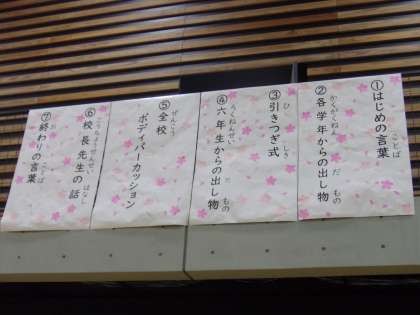 ①はじめの言葉
②各学年からの出し物
③引きつぎ式
④六年生からの出し物
⑤全校
ボディパーカッション
⑥校長先生の話
⑦終わりの言葉